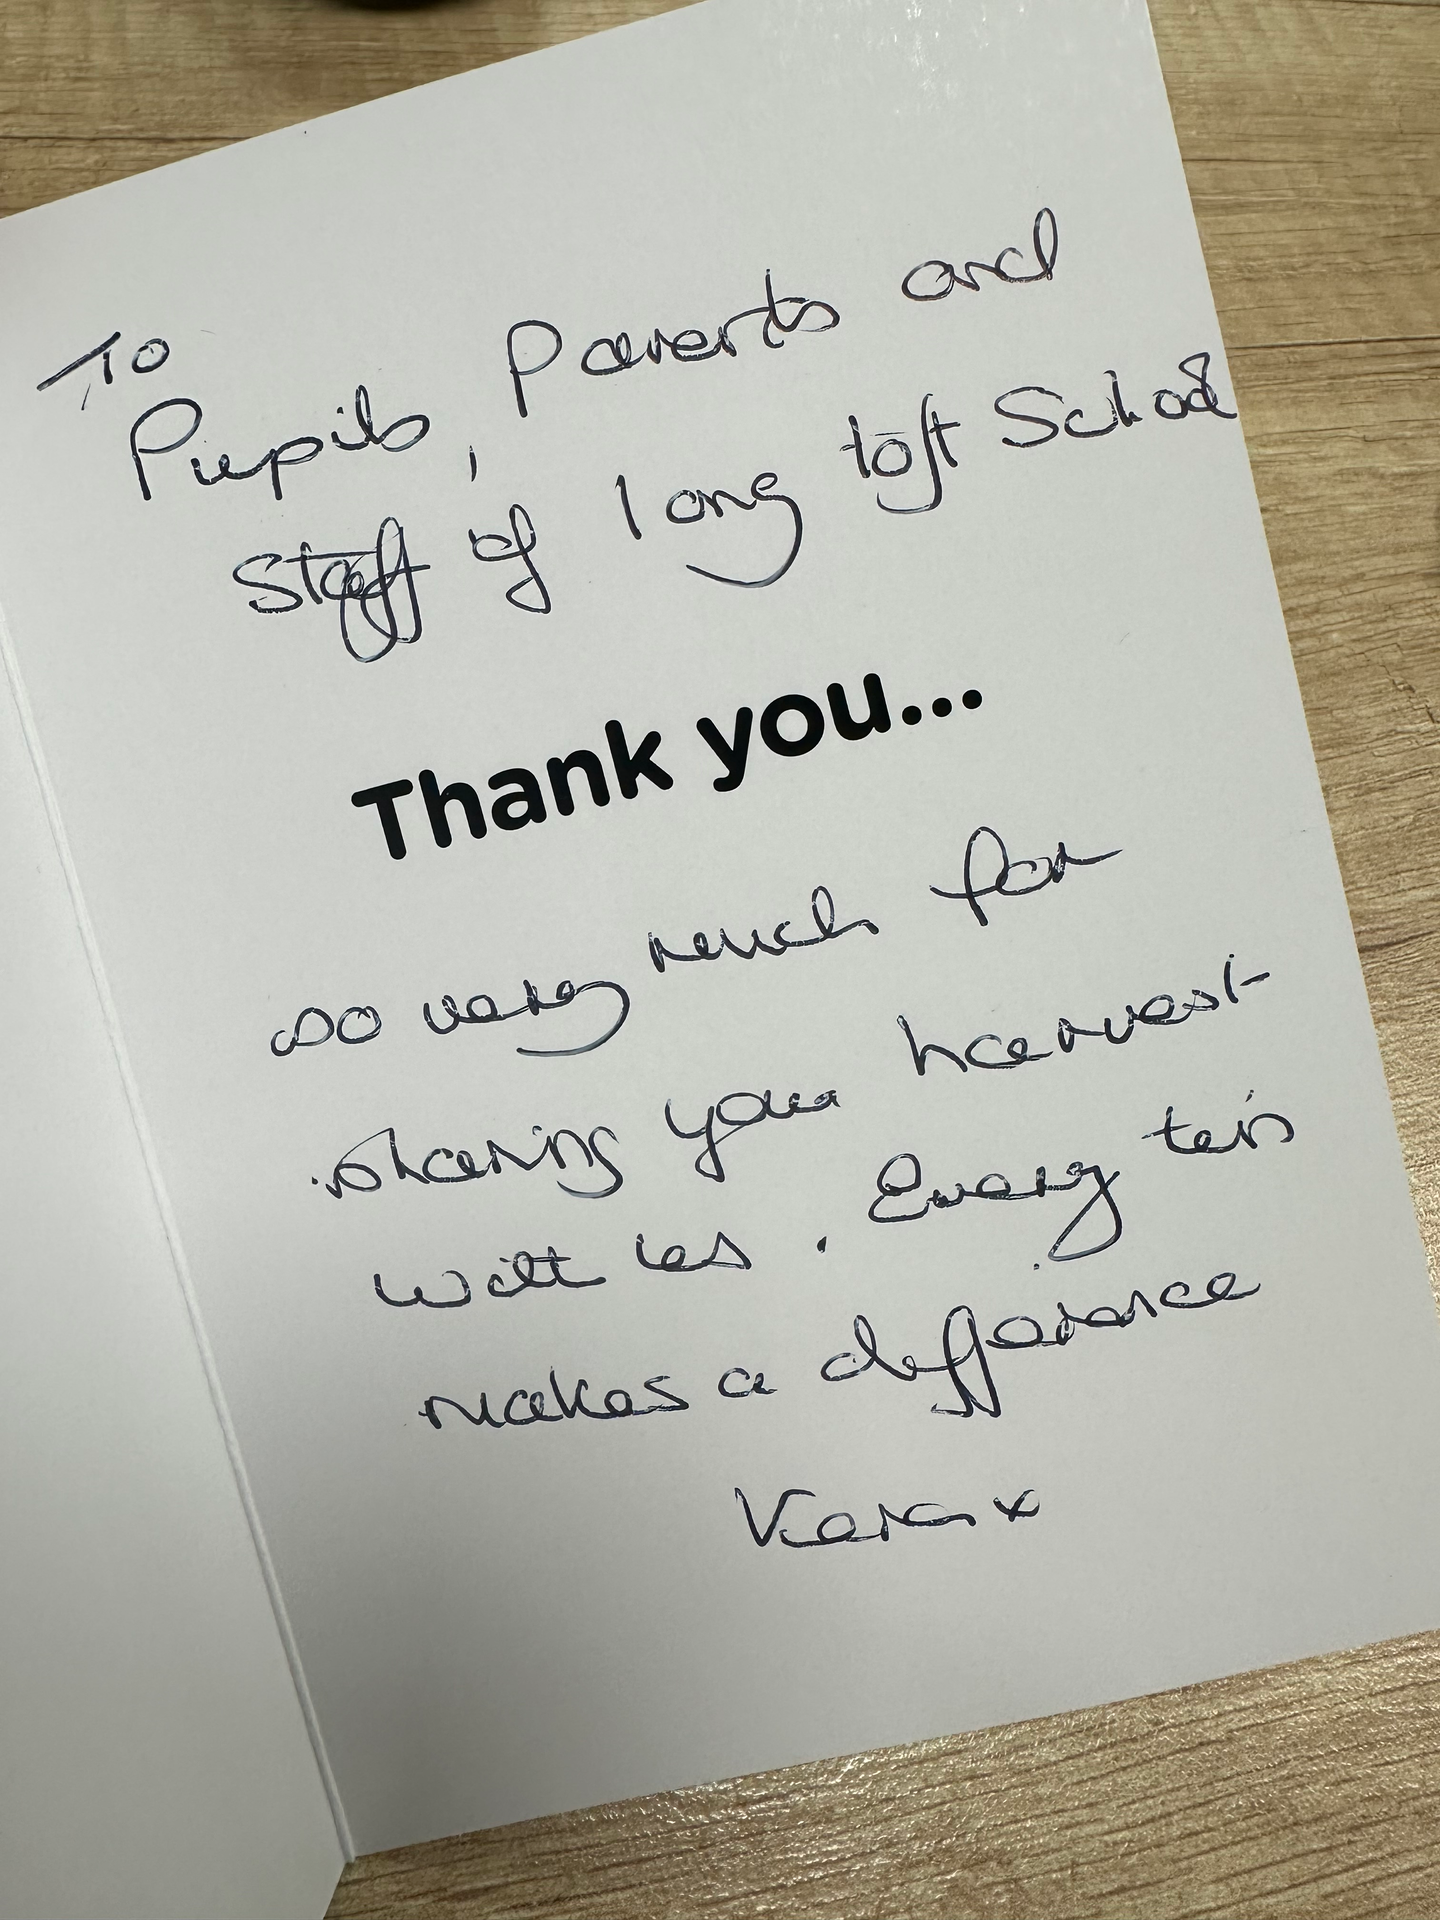 To
Pupils, Parents and
Staff of long toft School
Thank you...
so very much for
sharing your harvest
with us. Every tin
makes a difference
Kara x